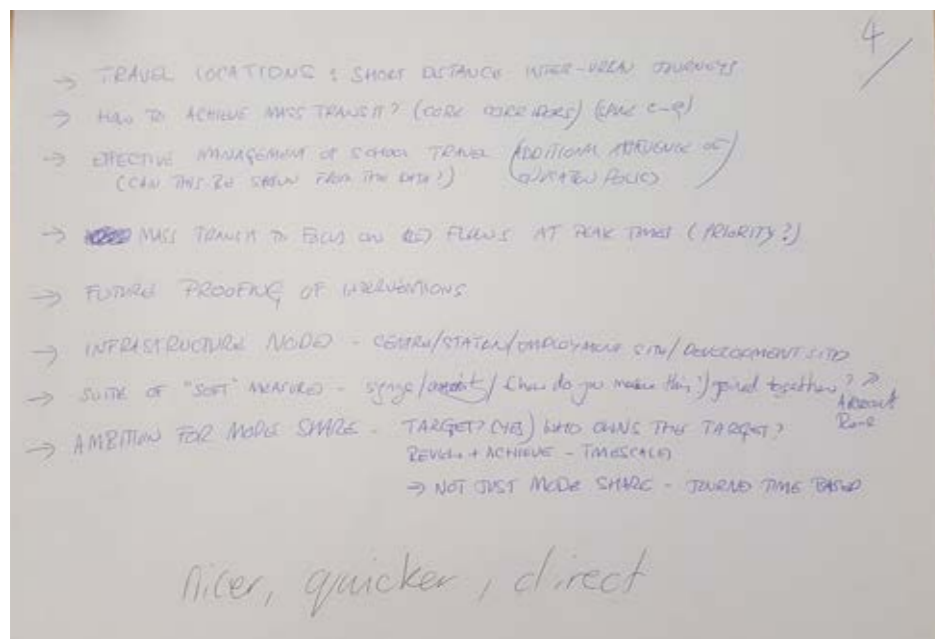 4/
→ TRAVEL LOCATIONS : SHORT DISTANCE INTER-URBAN JOURNEYS
→ HOW TO ACHIEVE MASS TRANSIT? (CORE CORRIDORS)
→ EFFECTIVE MANAGEMENT OF SCHOOL TRAVEL (ADDITIONAL OF
(CAN THIS BE SHOWN FROM THE DATA?) POLICY)
→ MASS TRANSIT TO FOCUS ON FLOWS AT PEAK TIMES (PRIORITY?)
→ FUTURE PROOFING OF INTERVENTIONS
→ INFRASTRUCTURE NODES - CENTRE/STATION/EMPLOYMENT SITES/DEVELOPMENT SITES
→ SUITE OF "SOFT" MEASURES - / (how do you make this) joined together? →
→ AMBITION FOR MODE SHARE - TARGET? (YES) WHO OWNS THIS TARGET?
REVIEW + ACHIEVE - TIMESCALES
→ NOT JUST MODE SHARE - JOURNEY TIME BASED
nicer, quicker, direct